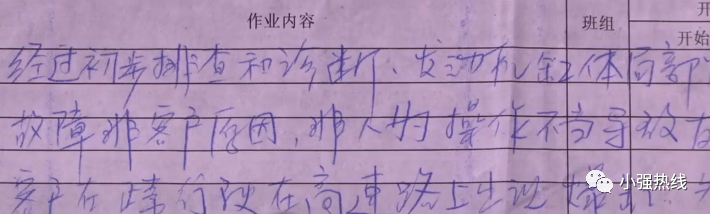 作业内容 班组 开
开始
经过初步排查和诊断、发动机缸体局部
故障非客户原因,非人为操作不当导致
客户在 行驶在高速路上出现爆
小强热线